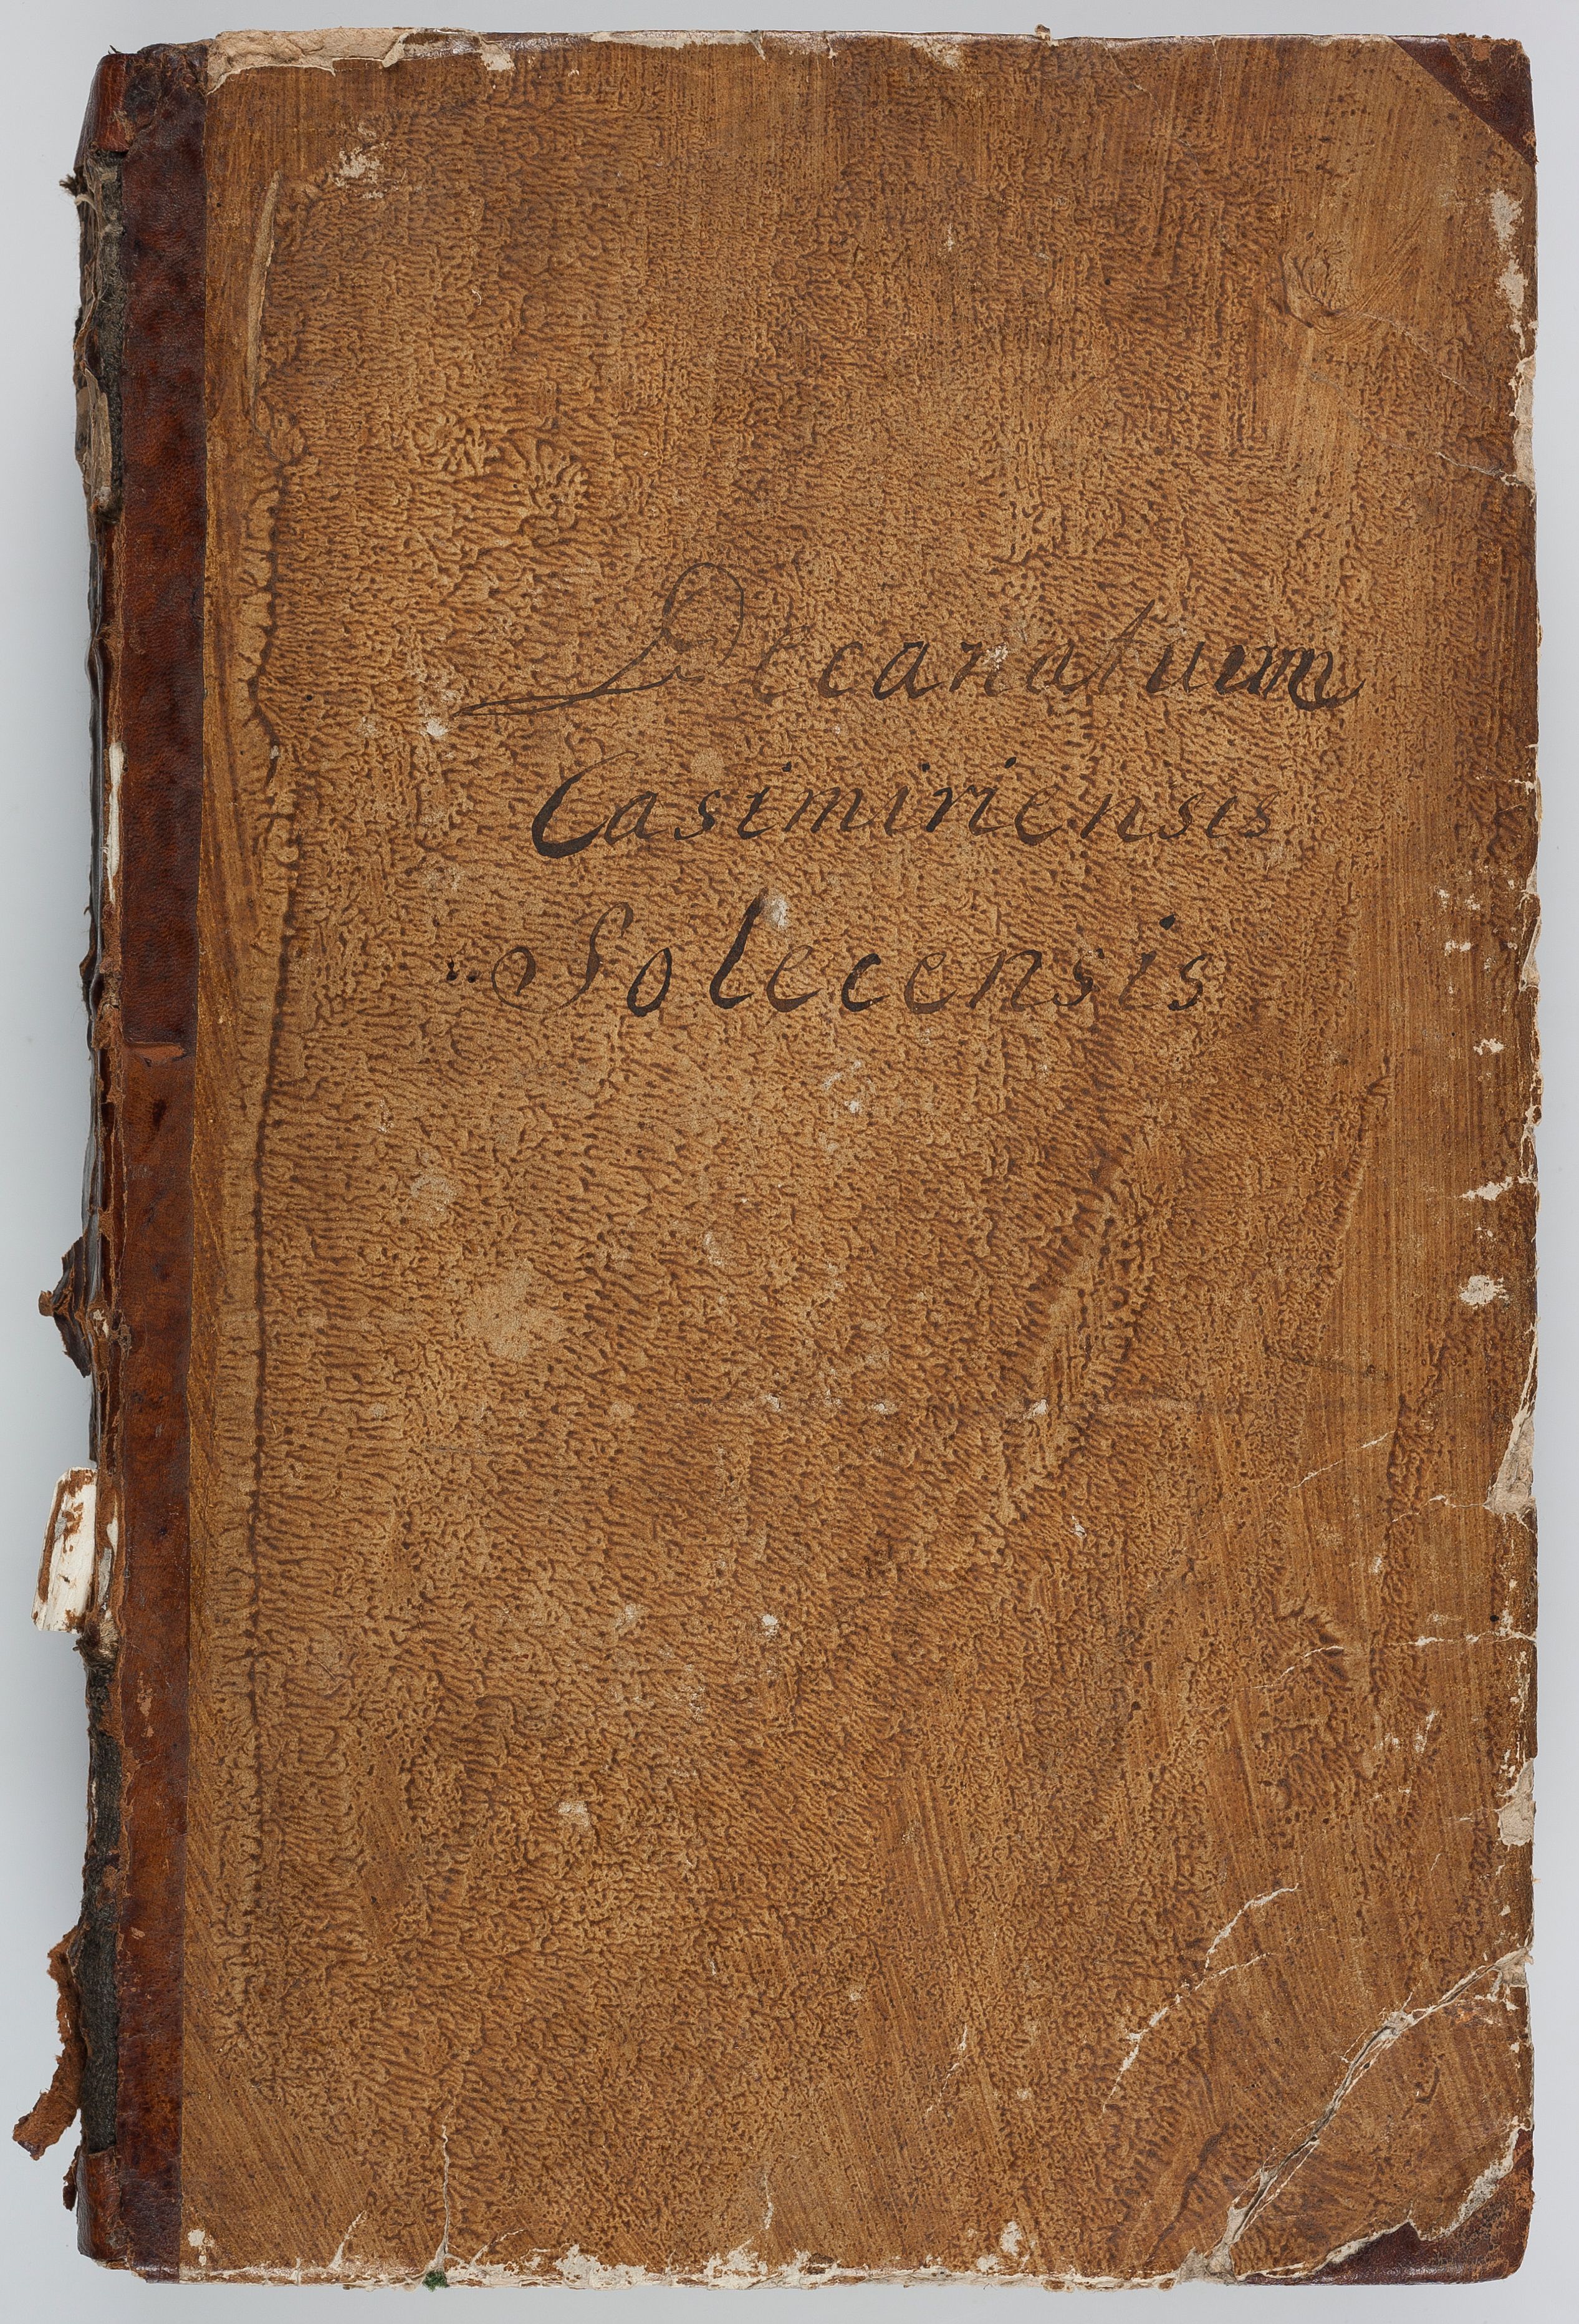 Decanatuum
Casimiriensis
Solecensis